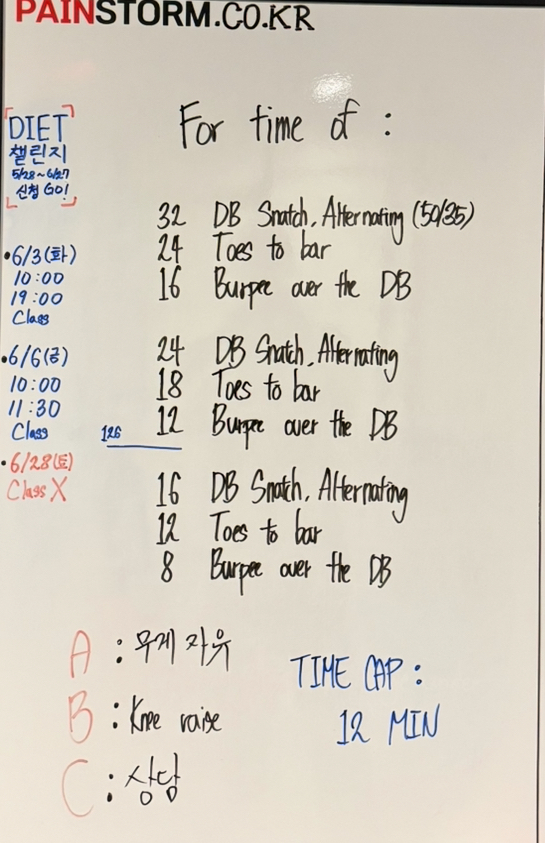 PAINSTORM.CO.KR
DIET
챌린지
5/28~6/27
신청 GO!
•6/3(화)
10:00
19:00
Class
•6/6(금)
10:00
11:30
Class
•6/28(토)
Class X
For time of :
32 DB Snatch, Alternating (50/35)
24 Toes to bar
16 Burpee over the DB
24 DB Snatch, Alternating
18 Toes to bar
126 12 Burpee over the DB
16 DB Snatch, Alternating
12 Toes to bar
8 Burpee over the DB
A : 무게 자유
B : Knee raise
C : 상담
TIME CAP :
12 MIN